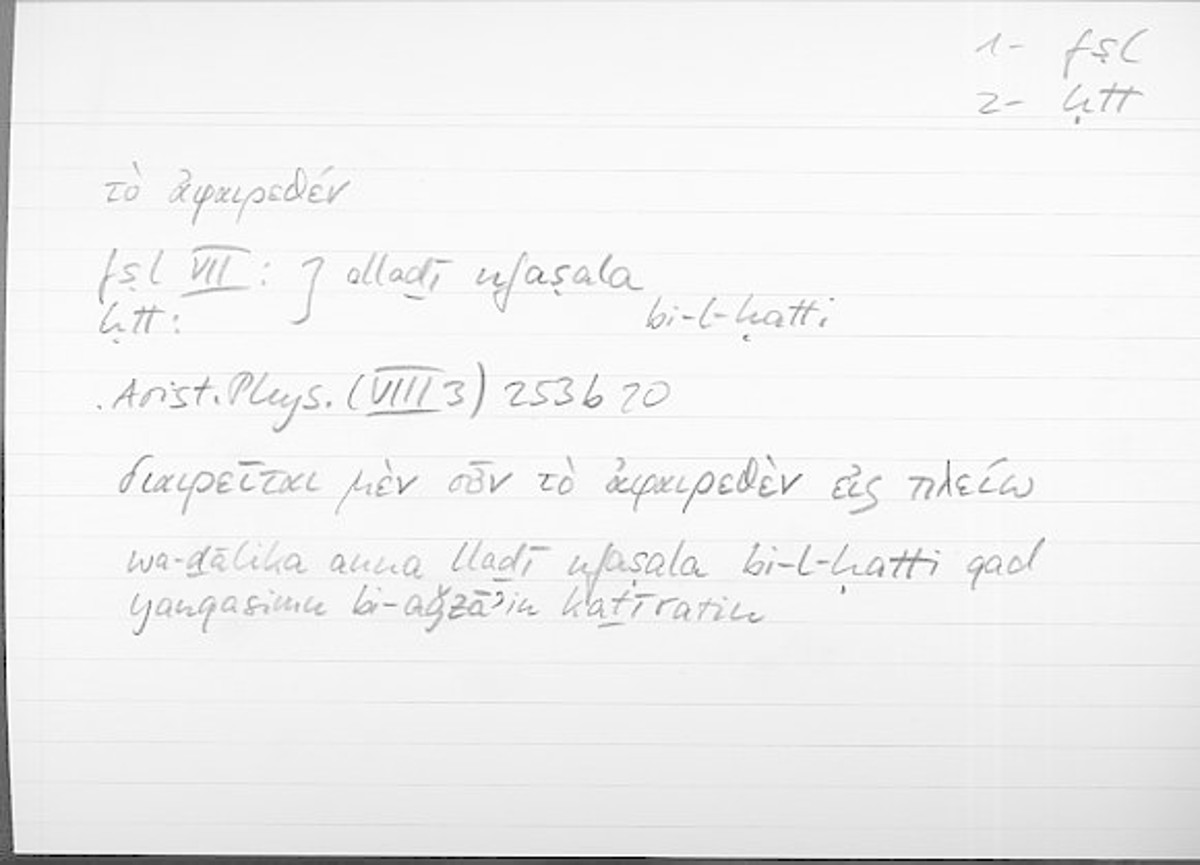 1- fṣl
2- ḥtt
τὸ ἀφαιρεθέν
fṣl VII : ] allaḏī nfaṣala
ḥtt : bi-l-ḥatti
. Arist. Phys. (VIII 3) 253b20
διαιρεῖται μὲν οὖν τὸ ἀφαιρεθὲν εἰς πλείω
wa-ḏālika anna llaḏī nfaṣala bi-l-ḥatti qad
yanqasimu bi-aǧzāʾin kaṯīratin